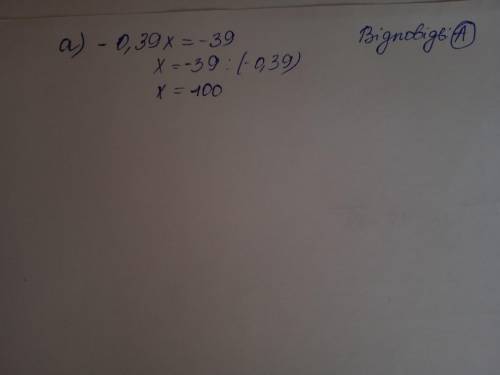 а) - 0,39x = -39 Відповідь: А
x = -39 : (-0,39)
x = 100